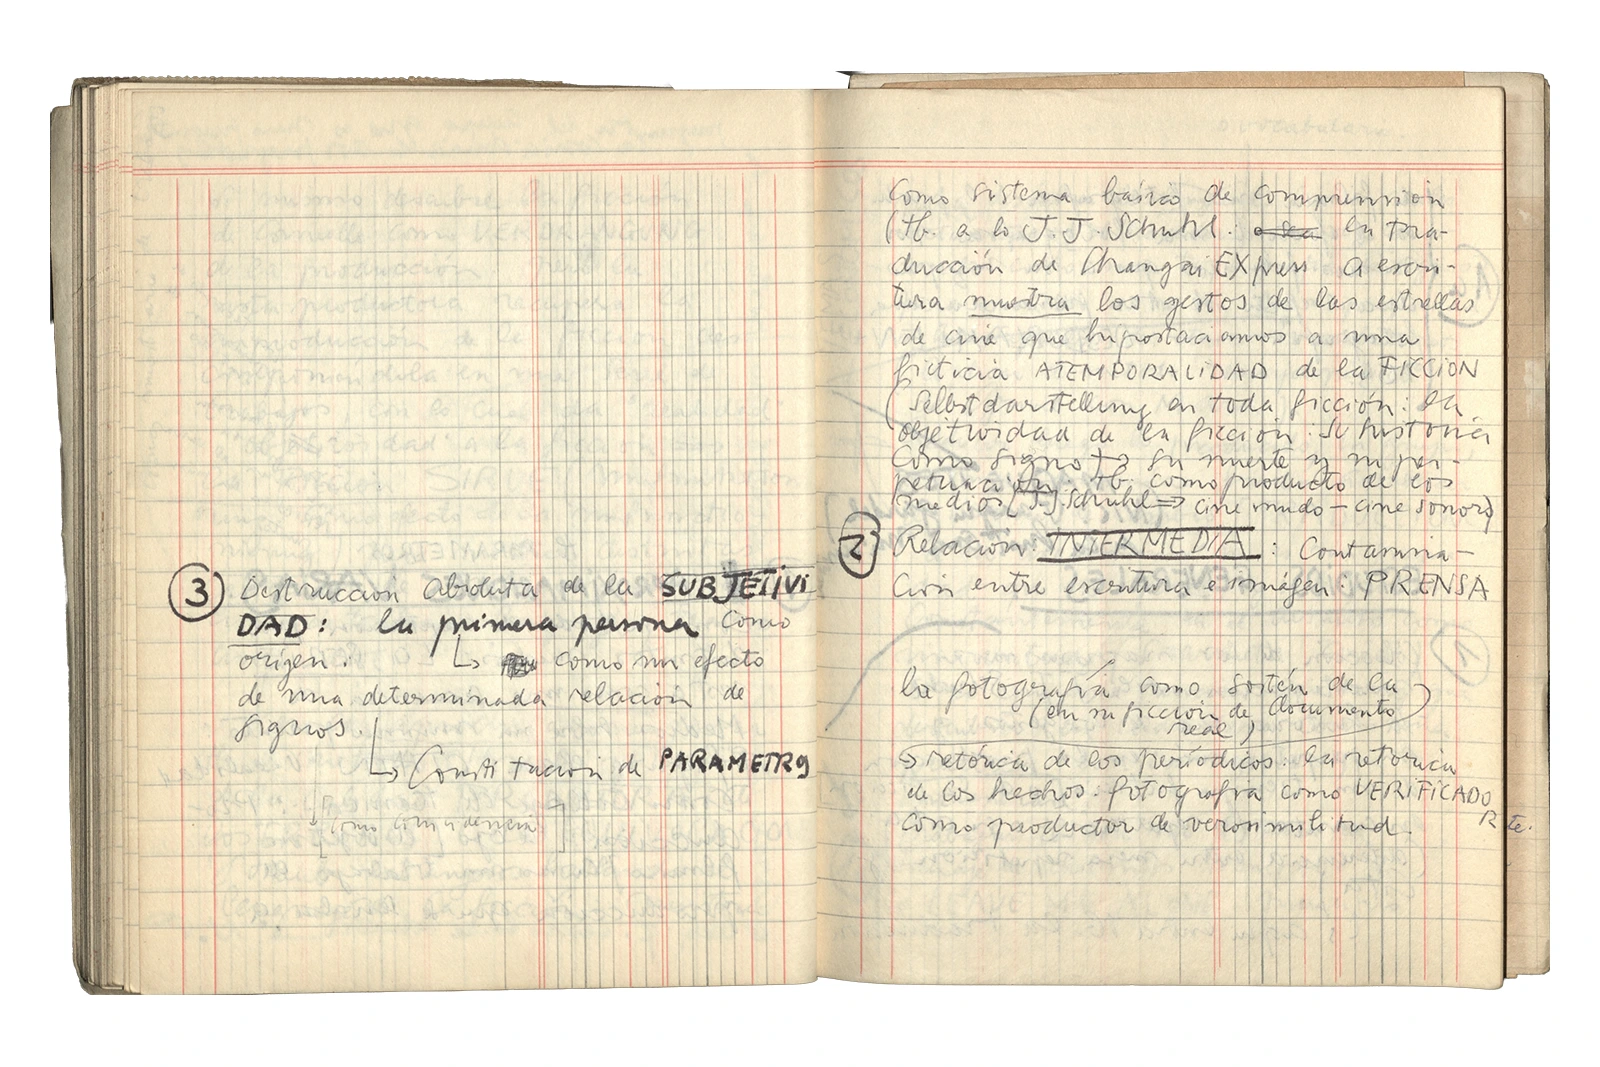 ③ Destrucción absoluta de la SUBJETIVI
DAD: la primera persona como
origen. ↳ como un efecto
de una determinada relación de
signos.
↳ Constitución de PARAMETRO
como coincidencia
como sistema básico de comprensión
(tb. a lo J.J. Schuhl: la tra-
ducción de Changai EXpress a escri-
tura muestra los gestos de las estrellas
de cine que hipostaciamos a una
ficticia ATEMPORALIDAD de la FICCION
(Selbstdarstellung en toda ficción: la
objetividad de la ficción: su historia
como signo) → su muerte y su per-
petuación: tb. como producto de los
medios (J.J. Schuhl ⇒ cine mudo – cine sonoro)
② Relación: INTERMEDIA : Contamina-
ción entre escritura e imágen: PRENSA
la fotografía como sostén de la
(en su ficción de documento
real)
↳ retórica de los periódicos: la retórica
de los hechos: fotografía como VERIFICADO
R
como productor de verosimilitud.
te.